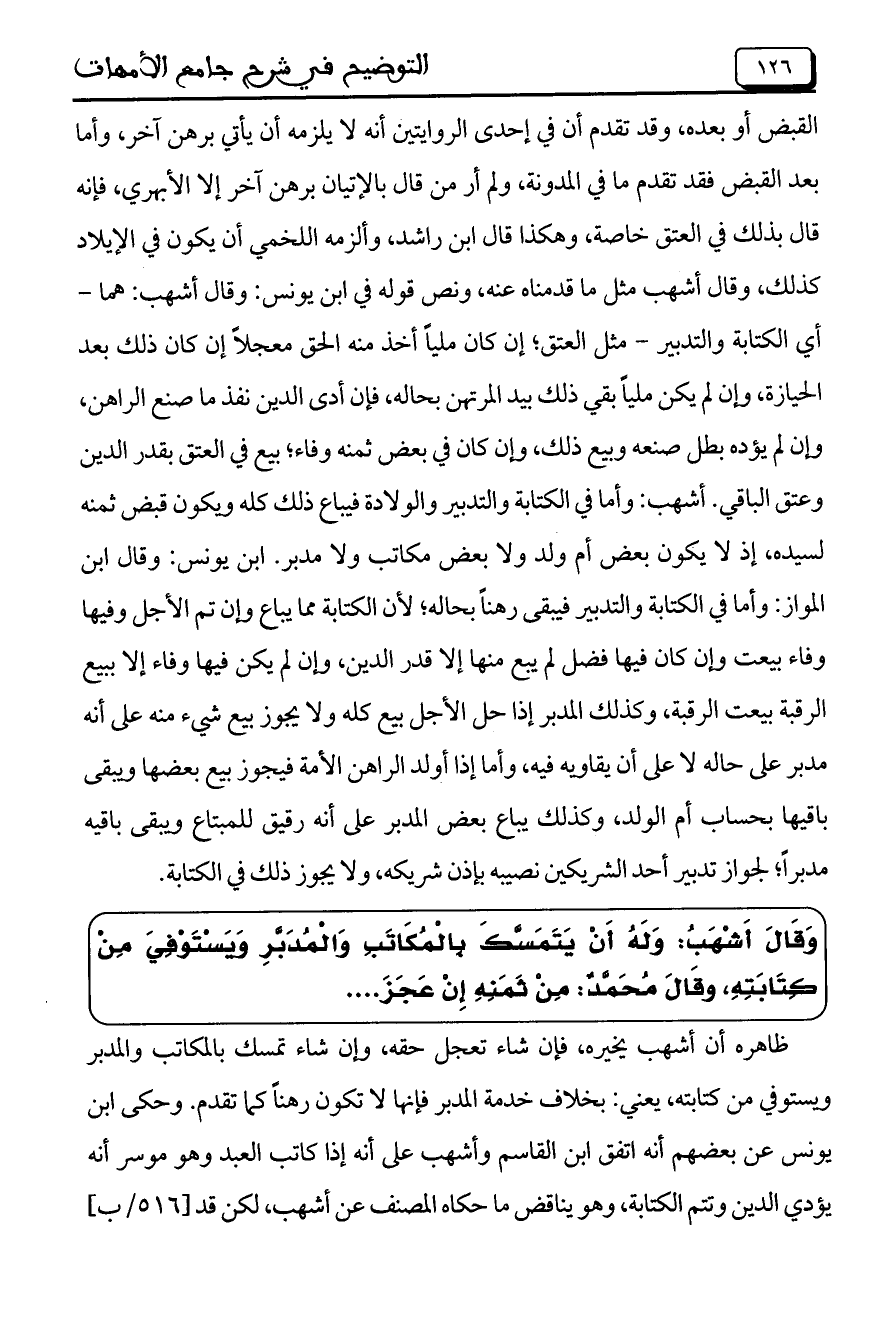 ١٢٦
التوضيح في شرح جامع الأمهات
القبض أو بعده، وقد تقدم أن في إحدى الروايتين أنه لا يلزمه أن يأتي برهن آخر، وأما
بعد القبض فقد تقدم ما في المدونة، ولم أر من قال بالإتيان برهن آخر إلا الأبهري، فإنه
قال بذلك في العتق خاصة، وهكذا قال ابن راشد، وألزمه اللخمي أن يكون في الإيلاد
كذلك، وقال أشهب مثل ما قدمناه عنه، ونص قوله في ابن يونس: وقال أشهب: هما –
أي الكتابة والتدبير – مثل العتق؛ إن كان ملياً أخذ منه الحق معجلاً إن كان ذلك بعد
الحيازة، وإن لم يكن ملياً بقي ذلك بيد المرتهن بحاله، فإن أدى الدين نفذ ما صنع الراهن،
وإن لم يؤده بطل صنعه وبيع ذلك، وإن كان في بعض ثمنه وفاء؛ بيع في العتق بقدر الدين
وعتق الباقي. أشهب: وأما في الكتابة والتدبير والولادة فيباع ذلك كله ويكون قبض ثمنه
لسيده، إذ لا يكون بعض أم ولد ولا بعض مكاتب ولا مدبر. ابن يونس: وقال ابن
المواز: وأما في الكتابة والتدبير فيبقى رهناً بحاله؛ لأن الكتابة مما يباع وإن تم الأجل وفيها
وفاء بيعت وإن كان فيها فضل لم يبع منها إلا قدر الدين، وإن لم يكن فيها وفاء إلا ببيع
الرقبة بيعت الرقبة، وكذلك المدبر إذا حل الأجل بيع كله ولا يجوز بيع شيء منه على أنه
مدبر على حاله لا على أن يقاويه فيه، وأما إذا أولد الراهن الأمة فيجوز بيع بعضها ويبقى
باقيها بحساب أم الولد، وكذلك يباع بعض المدبر على أنه رقيق للمبتاع ويبقى باقيه
مدبراً؛ لجواز تدبير أحد الشريكين نصيبه بإذن شريكه، ولا يجوز ذلك في الكتابة.
وَقَالَ أَشْهَبُ: وَلَهُ أَنْ يَتَمَسَّكَ بِالْمُكَاتَبِ وَالْمُدَبَّرِ وَيَسْتَوْفِيَ مِنْ
كِتَابَتِهِ، وقَالَ مُحَمَّدٌ: مِنْ ثَمَنِهِ إِنْ عَجَزَ....
ظاهره أن أشهب يخيره، فإن شاء تعجل حقه، وإن شاء تمسك بالمكاتب والمدبر
ويستوفي من كتابته، يعني: بخلاف خدمة المدبر فإنها لا تكون رهناً كما تقدم. وحكى ابن
يونس عن بعضهم أنه اتفق ابن القاسم وأشهب على أنه إذا كاتب العبد وهو موسر أنه
يؤدي الدين وتتم الكتابة، وهو يناقض ما حكاه المصنف عن أشهب، لكن قد [٥١٦/ ب]